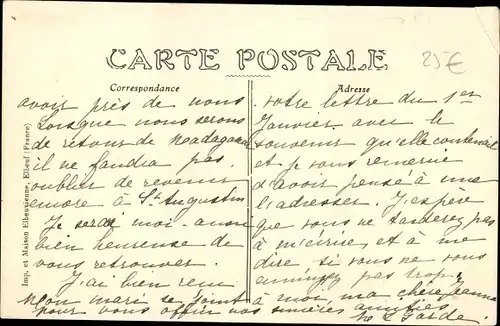 CARTE POSTALE
25€
Correspondance
avoir près de nous
Lorsque nous serons
de retour de Madagascar
il ne faudra pas
oublier de revenir
encore à St Augustin
Je serai moi aussi
bien heureuse de
vous retrouver.
J'ai bien remis
Mon mari se joint
Adresse
votre lettre du 1er
Janvier avec le
souvenir qu'elle contenait
et je vous remercie
d'avoir pensé à me
l'adresser. J'espère
que vous ne tarderez pas
à m'écrire et à me
dire si vous ne vous
ennuyez pas trop.
à moi, ma chère Jeanne
pour vous offrir nos sincères amitiés
L Garde.
Imp. d Maison Elbeuvienne, Elbeuf (France)